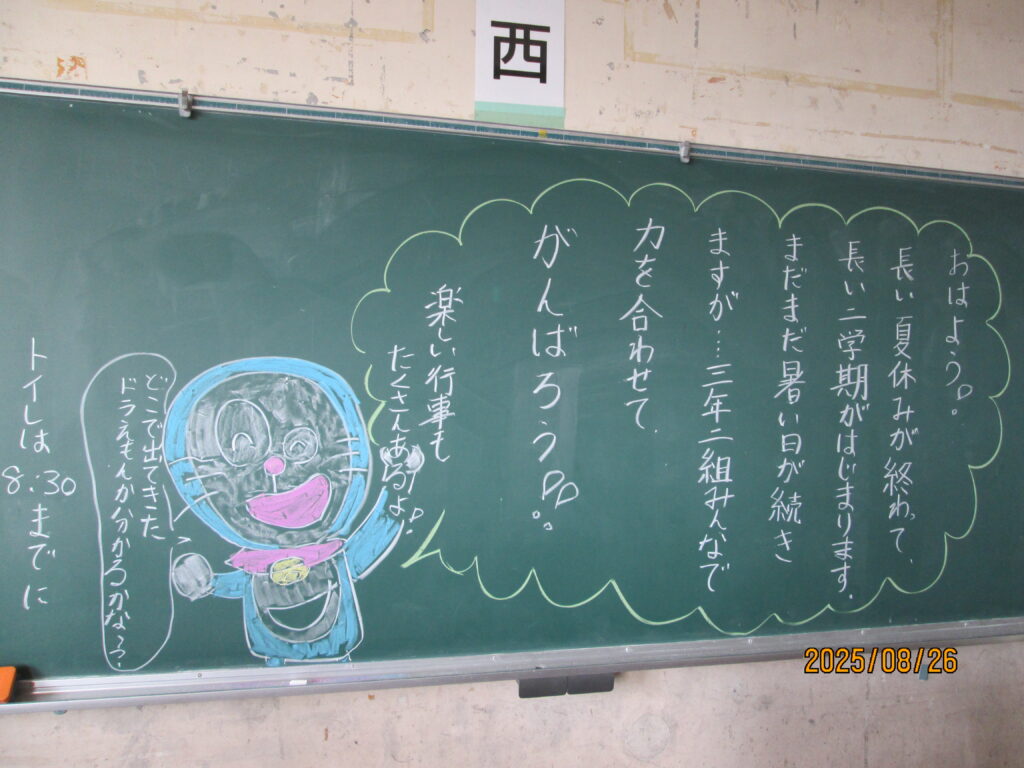 西
おはよう!!
長い夏休みが終わって、
長い二学期がはじまります。
まだまだ暑い日が続き
ますが…三年二組みんなで
力を合わせて、
がんばろう!!
楽しい行事も
たくさんあるよ!
どこで出てきた
ドラえもんか分かるかな??
トイレは
8:30
までに
2025/08/26